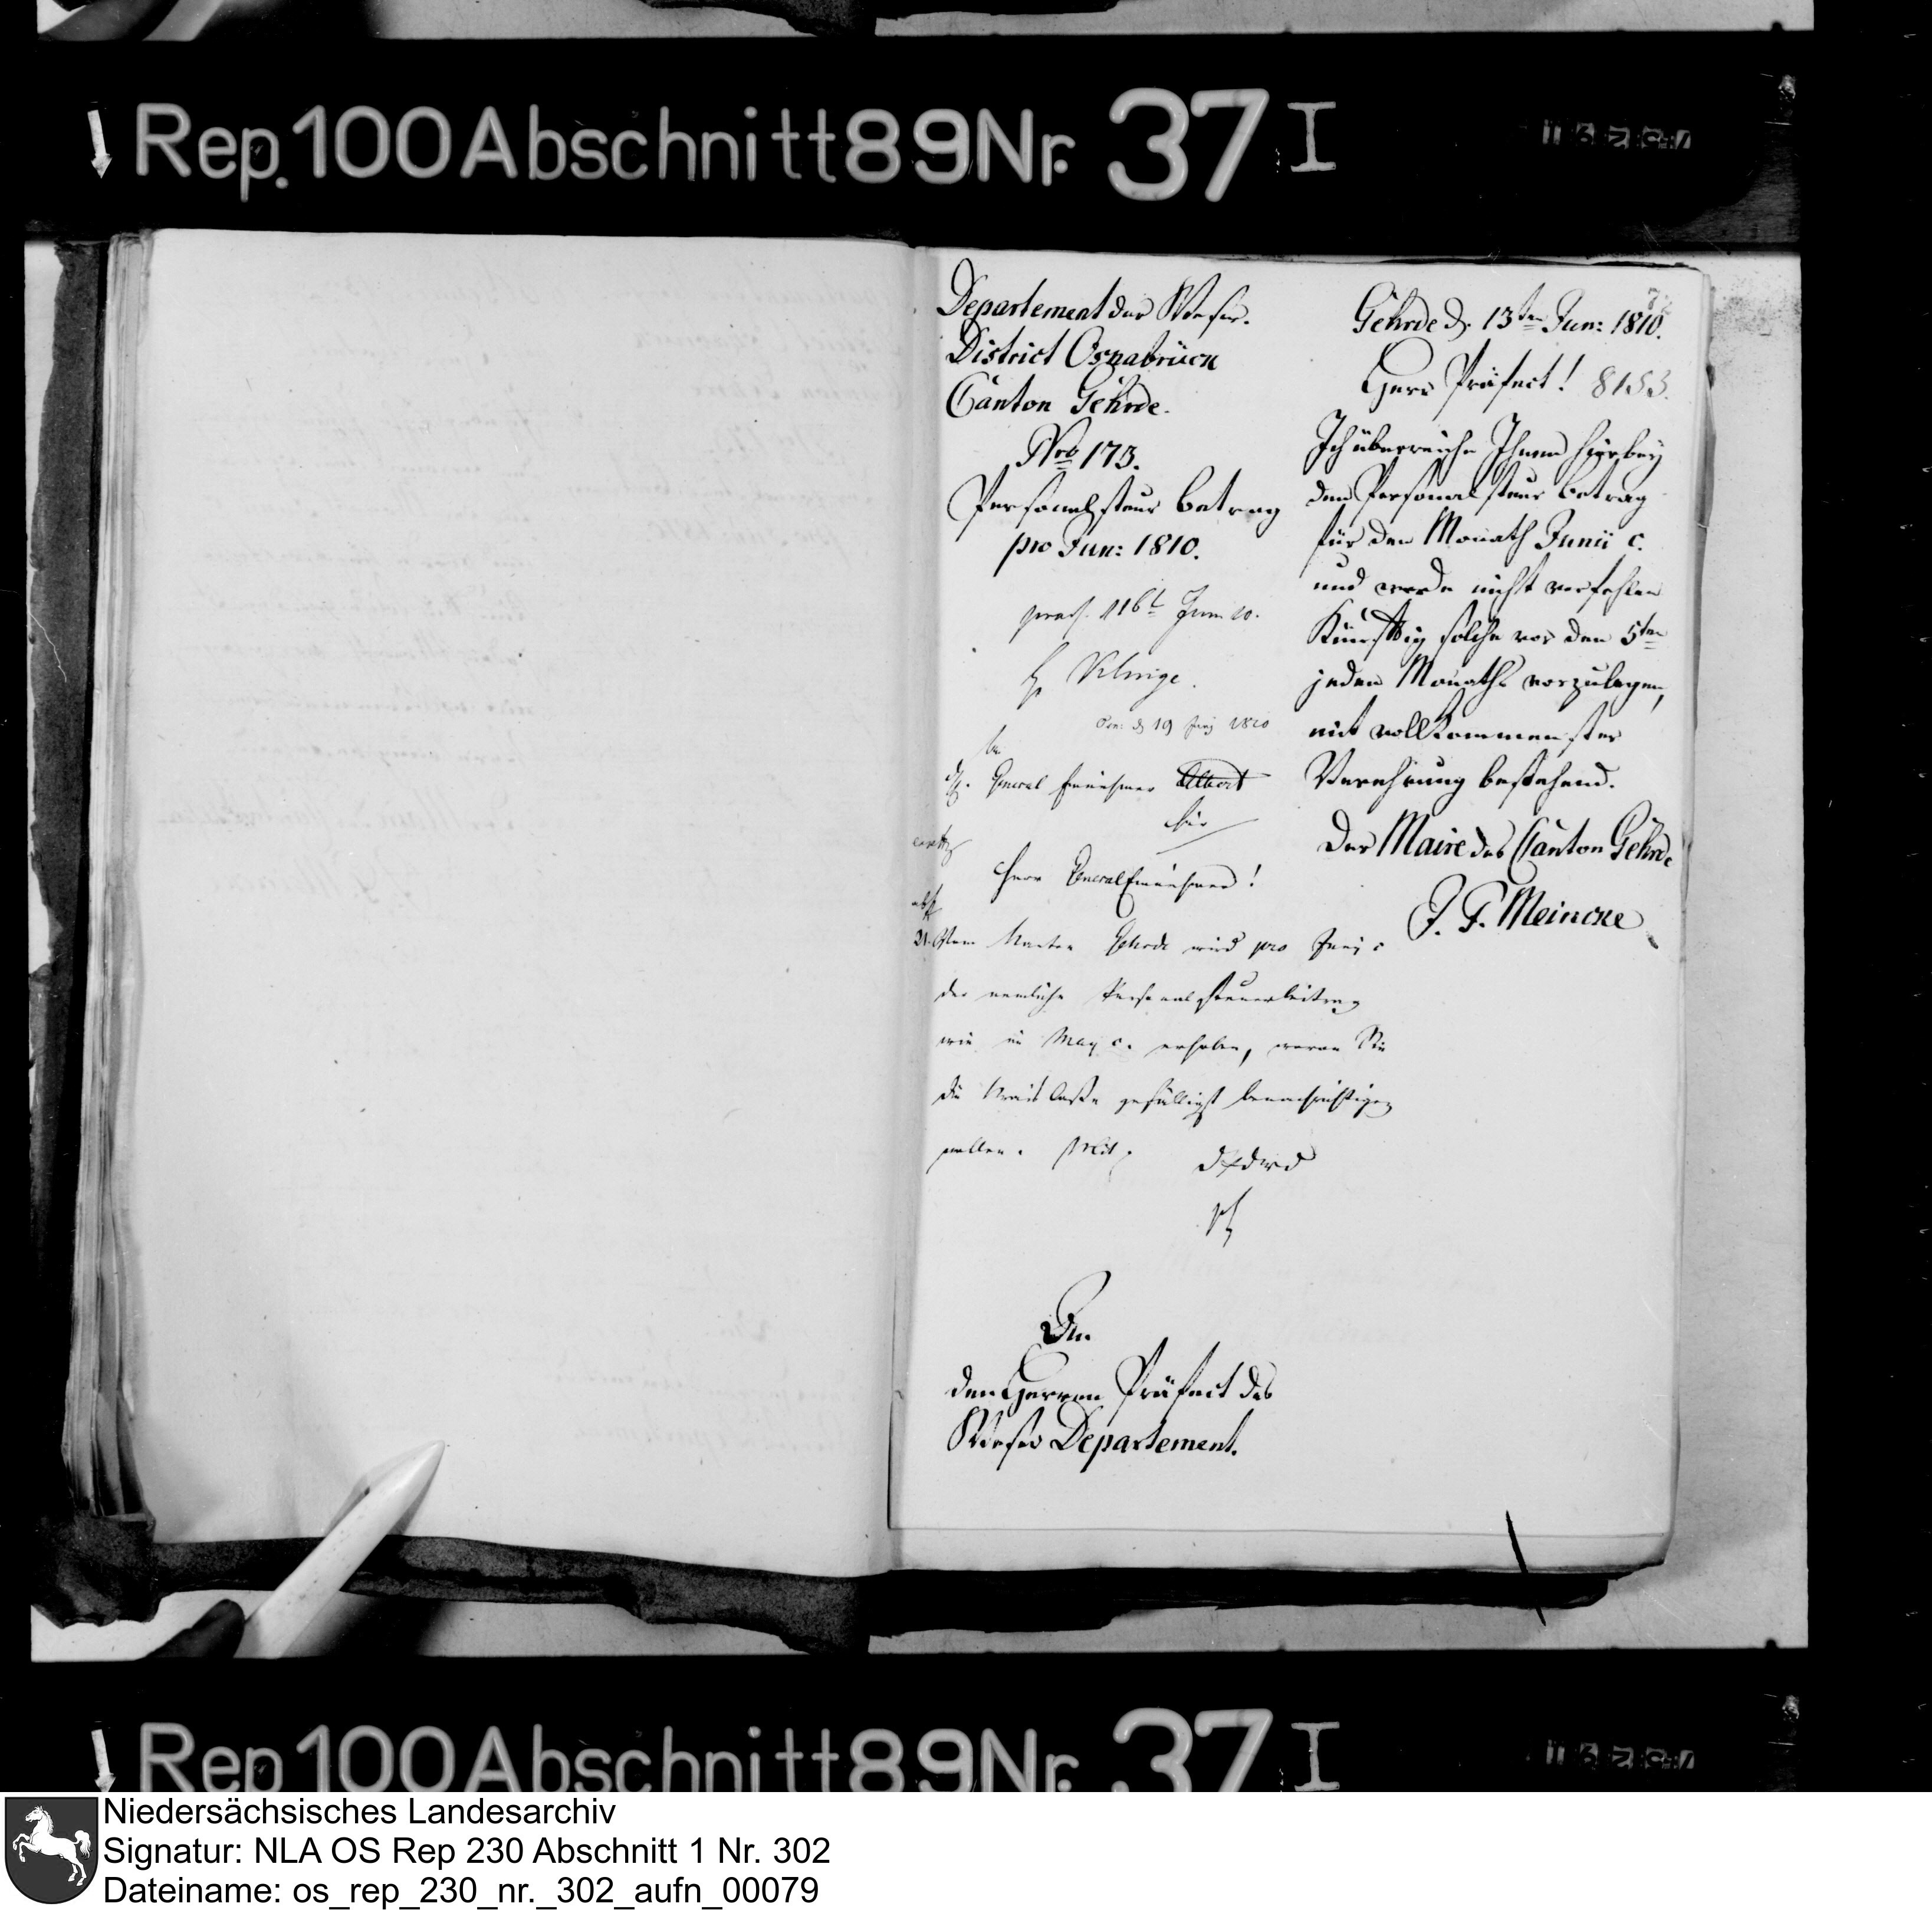 Rep. 100 Abschnitt 89 Nr. 37 I
Departement der Weser.
District Osnabrück
Canton Gehrde.
Nro 173.
Personalsteur betrag
pro Jun: 1810.
praes. 16t Jun 10.
H Kluge.
Osn: d 19 Juny 1810
An
H. General Einnehmer Albert
hier
Herr General Einnehmer!
Vom Kanton Gehrde wird pro Juny c
der nemliche Personalsteuerbeitrag
wie im May c. erhoben, wovon Sie
die Kreis Casse gefälligst benachrichtigen
wollen. Mit
D P d W D
Gehrde d. 13ten Jun: 1810.
Herr Präfect! 8153.
Ich überreiche Ihnen hierbey
den Personalsteur betrag
für den Monath Junii c.
und werde nicht verfehlen
Künftig solche vor den 5ten
jeden Monaths vorzulegen,
mit vollkommenster
Verehrung bestehend.
Der Maire des Canton Gehrde
J. F. Meincke
An
den Herren Präfect des
Weser Departement.
Rep 100 Abschnitt 89 Nr. 37 I
Niedersächsisches Landesarchiv
Signatur: NLA OS Rep 230 Abschnitt 1 Nr. 302
Dateiname: os_rep_230_nr._302_aufn_00079